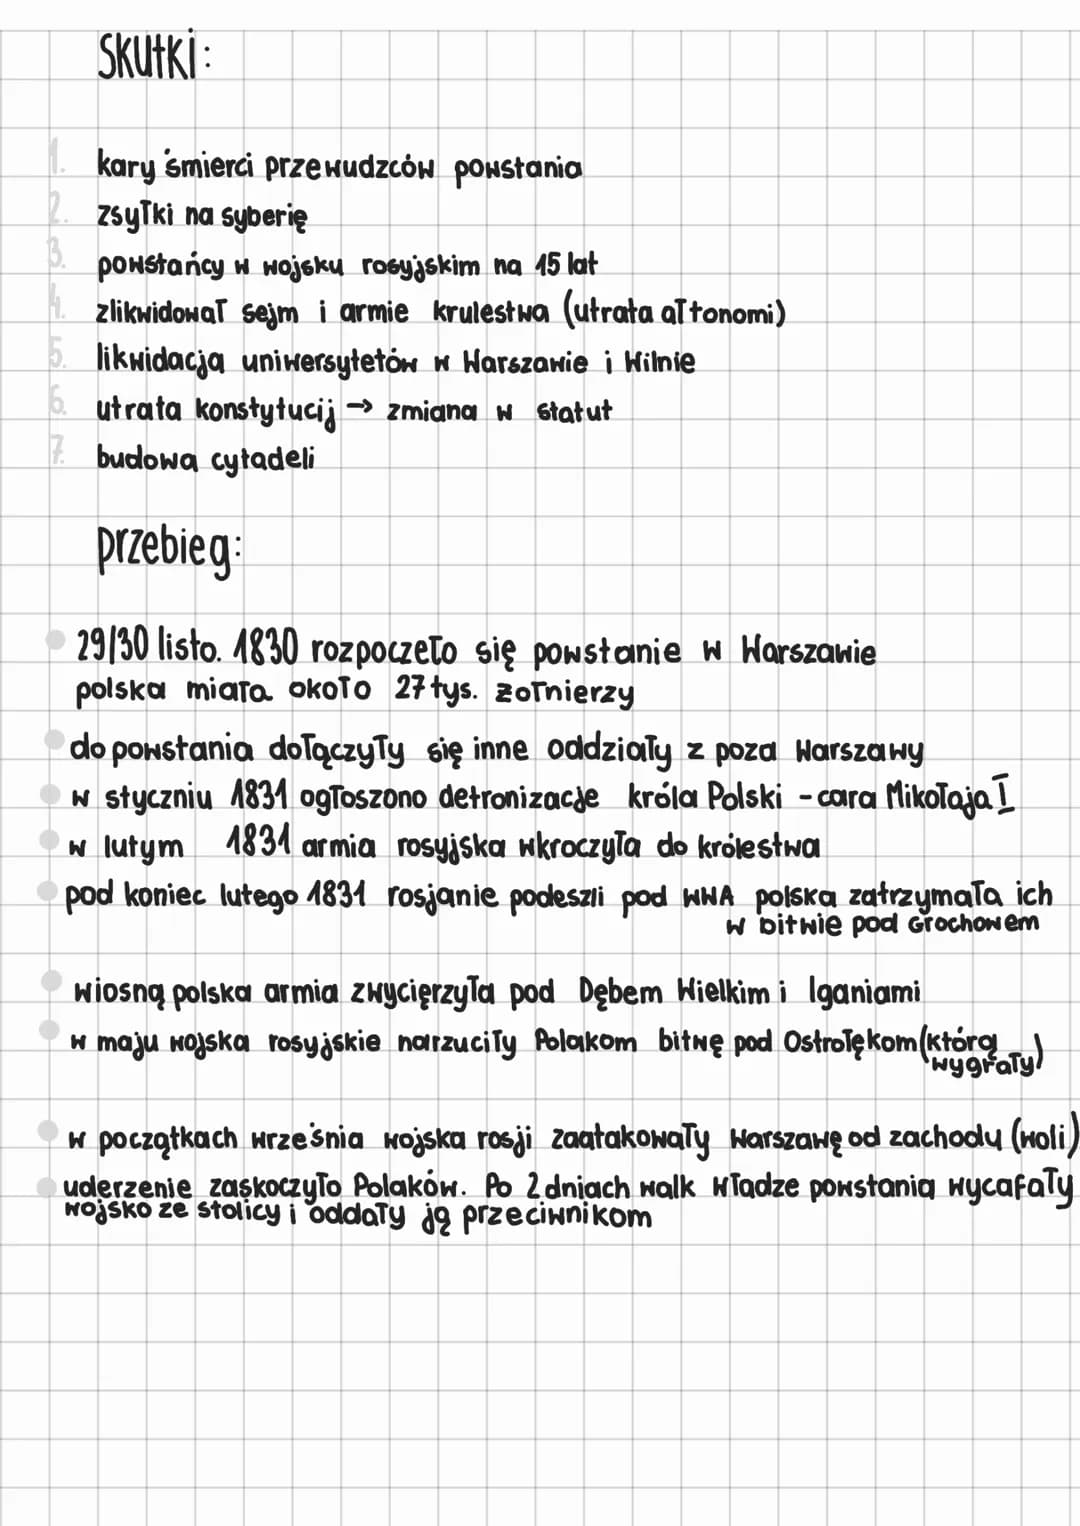 Skutki:
1. kary śmierci przewudzców powstania
2. zsyłki na syberię
3. powstańcy w wojsku rosyjskim na 15 lat
4. zlikwidował sejm i armie krulestwa (utrata ałtonomi)
5. likwidacja uniwersytetów w Warszawie i Wilnie
6. utrata konstytucij → zmiana w statut
7. budowa cytadeli
przebieg:
29/30 listo. 1830 rozpoczeło się powstanie w Warszawie
polska miała około 27 tys. żołnierzy
do powstania dołączyły się inne oddziały z poza Warszawy
w styczniu 1831 ogłoszono detronizacje króla Polski - cara Mikołaja I
w lutym 1831 armia rosyjska wkroczyła do królestwa
pod koniec lutego 1831 rosjanie podeszli pod WWA polska zatrzymała ich
w bitwie pod Grochowem
wiosną polska armia zwycięrzyła pod Dębem Wielkim i Iganiami
w maju wojska rosyjskie narzuciły Polakom bitwę pod Ostrołękom (którą
wygrały)
w początkach września wojska rosji zaatakowały Warszawę od zachodu (woli)
uderzenie zaskoczyło Polaków. Po 2 dniach walk władze powstania wycafały
wojsko ze stolicy i oddały ją przeciwnikom